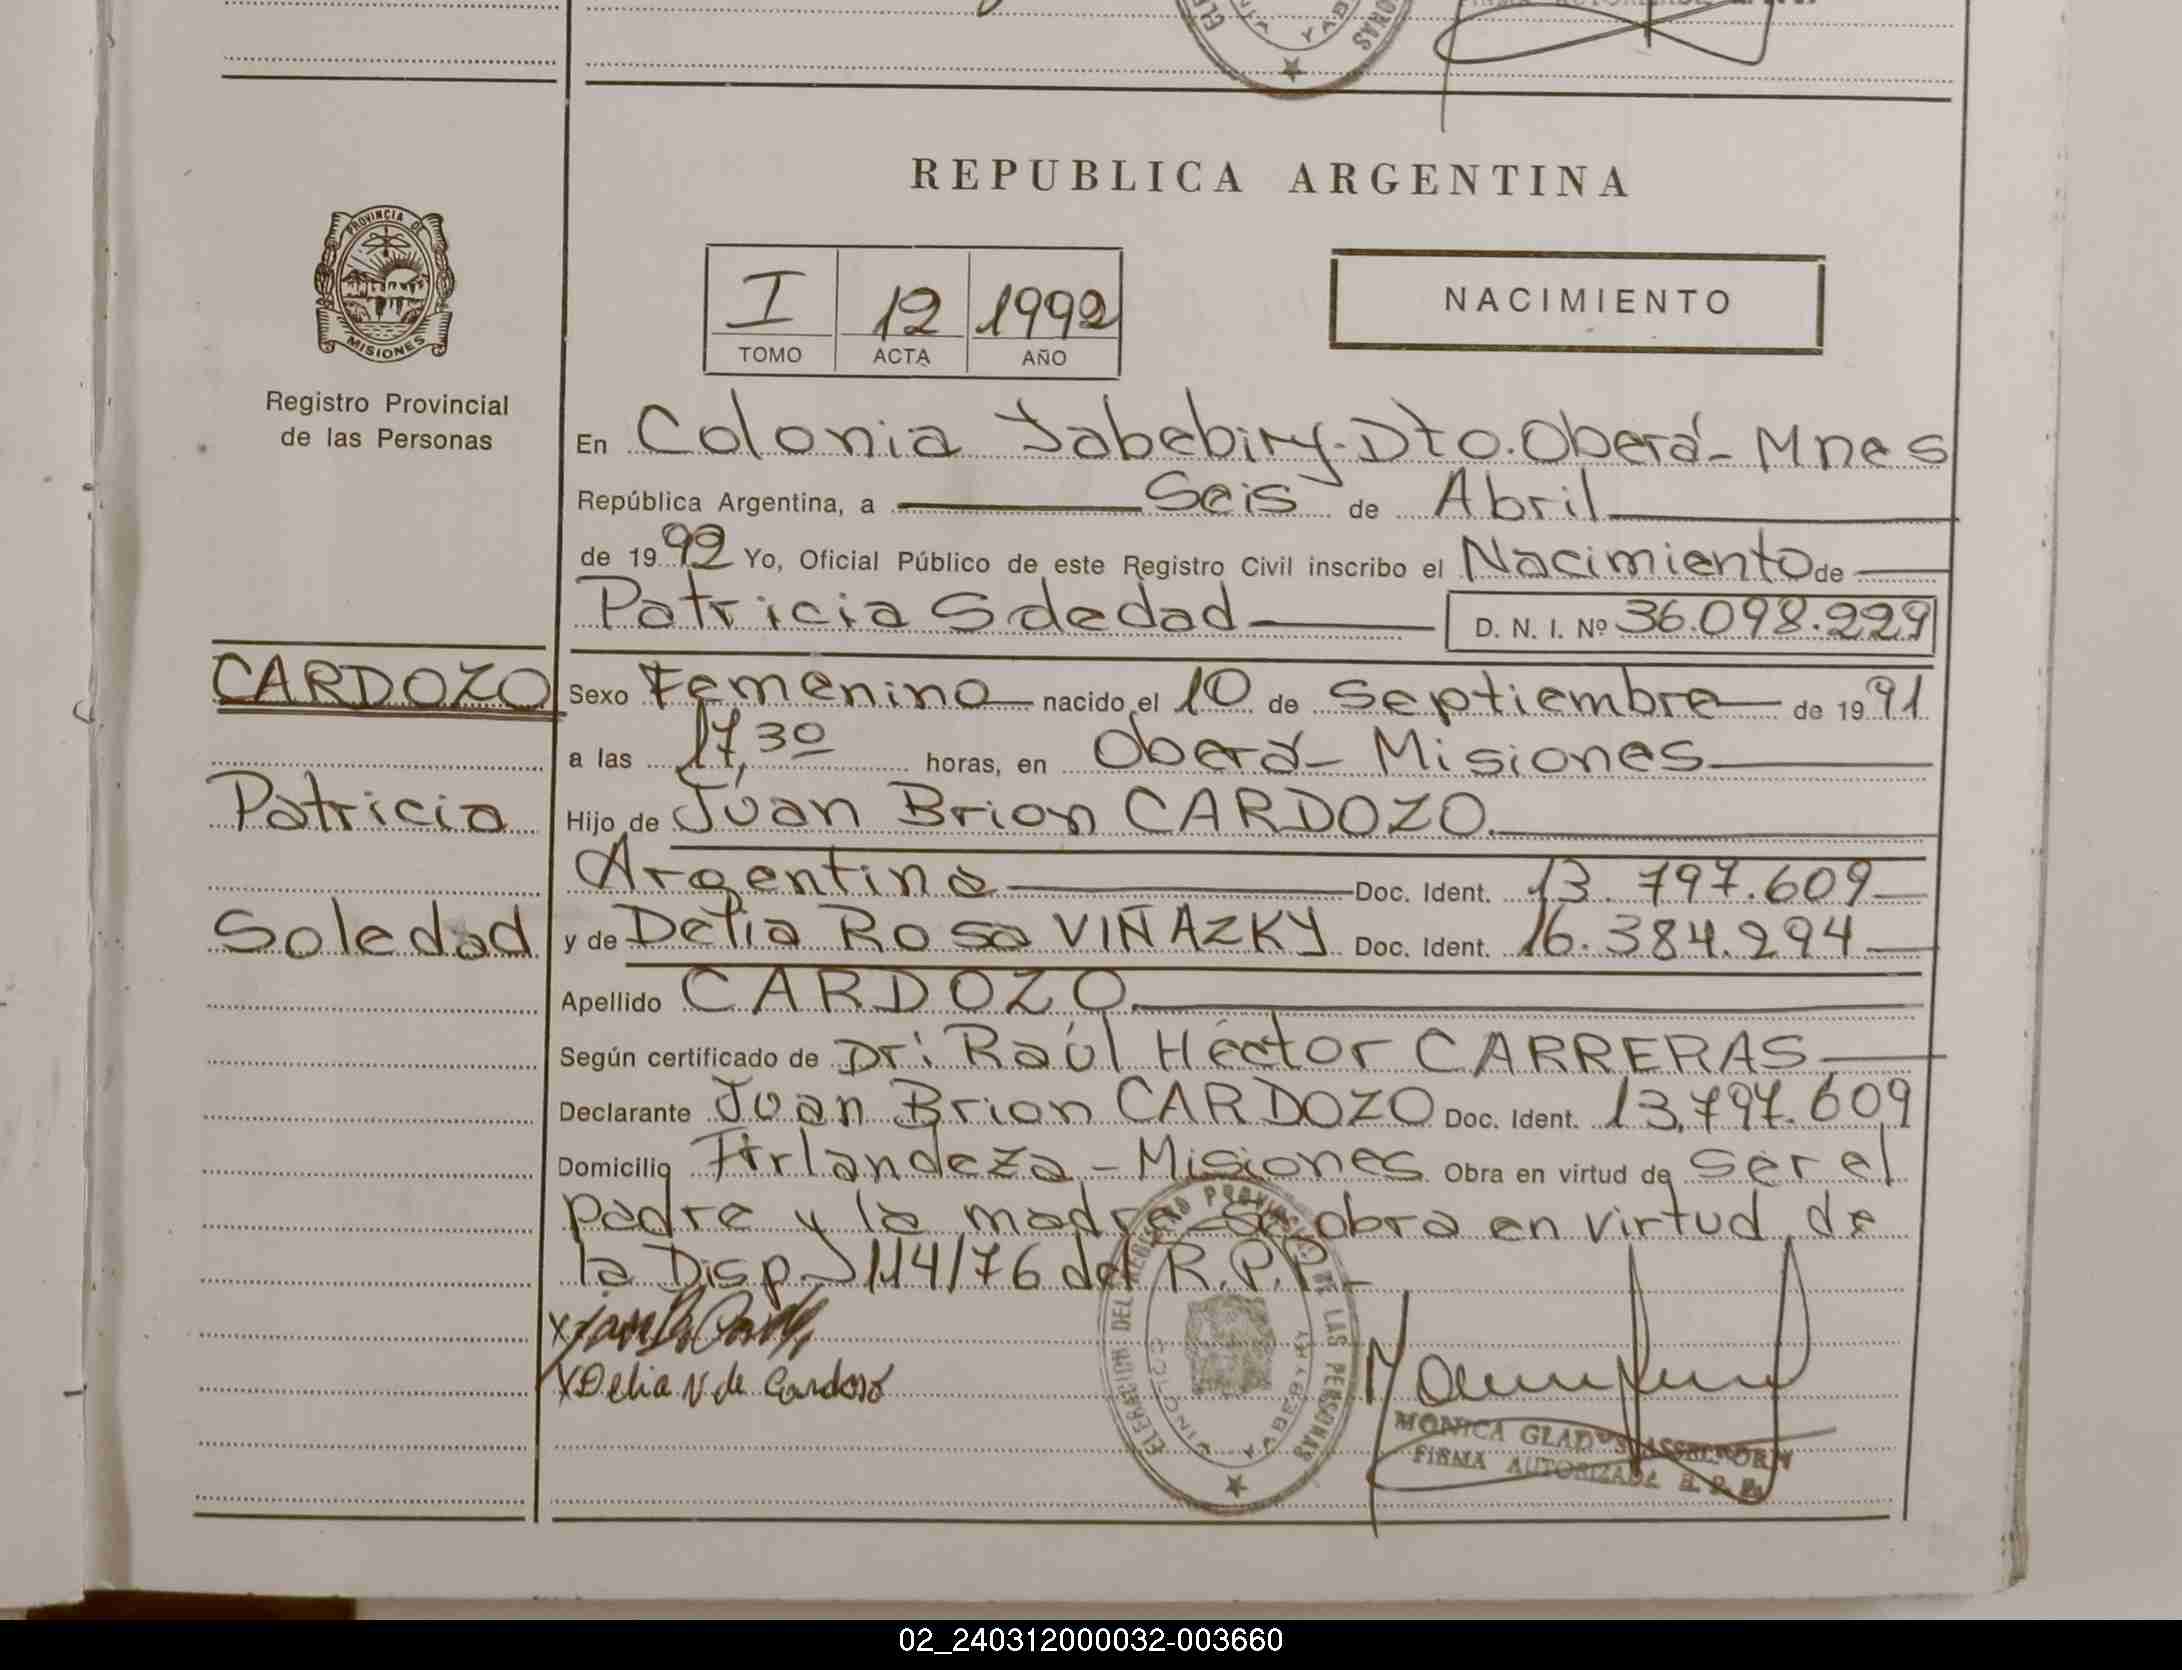 REPUBLICA ARGENTINA
PROVINCIA DE
MISIONES
Registro Provincial
de las Personas
I 12 1992
TOMO ACTA AÑO
NACIMIENTO
En Colonia Yabebiry-Dto. Oberá- Mnes
República Argentina, a Seis de Abril
de 1992 Yo, Oficial Público de este Registro Civil inscribo el Nacimiento de
Patricia Soledad D. N. I. Nº 36.098.229
CARDOZO
Patricia
Soledad
Sexo Femenino nacido el 10 de Septiembre de 1991
a las 17,30 horas, en Oberá- Misiones
Hijo de Juan Brion CARDOZO
Argentina Doc. Ident. 13.797.609
y de Delia Rosa VIÑAZKY Doc. Ident. 16.384.294
Apellido CARDOZO
Según certificado de Dr: Raúl Héctor CARRERAS
Declarante Juan Brion CARDOZO Doc. Ident. 13.797.609
Domicilio Firlandeza - Misiones Obra en virtud de ser el
padre y la madre se obra en virtud de
la Disp. 114/76 del R.P.P.-
X Delia V. de Cardozo
DEL REGISTRO PROVINCIAL DE LAS PERSONAS
YABEBIRY
MONICA GLADYS
FIRMA AUTORIZADA R. P. P.
02_240312000032-003660